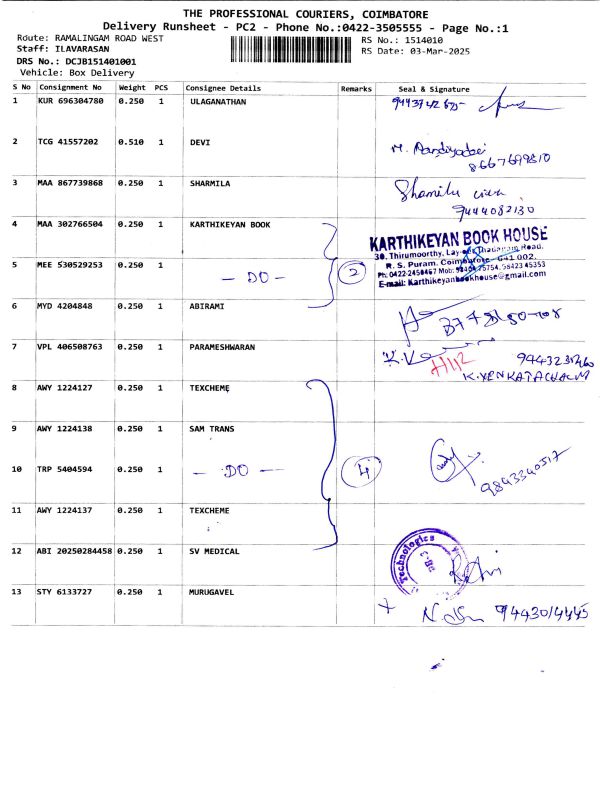 THE PROFESSIONAL COURIERS, COIMBATORE
Delivery Runsheet - PC2 - Phone No.:0422-3505555 - Page No.:1
Route: RAMALINGAM ROAD WEST
RS No.: 1514010
Staff: ILAVARASAN
RS Date: 03-Mar-2025
DRS No.: DCJB151401001
Vehicle: Box Delivery
S No Consignment No Weight PCS Consignee Details Remarks Seal & Signature
1 KUR 696304780 0.250 1 ULAGANATHAN
2 TCG 41557202 0.510 1 DEVI
8667699810
3 MAA 867739868 0.250 1 SHARMILA
9444082130
4 MAA 302766504 0.250 1 KARTHIKEYAN BOOK
KARTHIKEYAN BOOK HOUSE
30, Thirumoorthy, Layout, Thadagam Road,
R. S. Puram, Coimbatore - 641 002.
E-mail: Karthikeyanbookhouse@gmail.com
5 MEE 530529253 0.250 1 - DO - 2
6 MYD 4204848 0.250 1 ABIRAMI
7 VPL 406508763 0.250 1 PARAMESHWARAN
H112
K.VENKATACHALM
8 AWY 1224127 0.250 1 TEXCHEME
9 AWY 1224138 0.250 1 SAM TRANS
10 TRP 5404594 0.250 1 - DO - 4
9843340517
11 AWY 1224137 0.250 1 TEXCHEME
12 ABI 20250284458 0.250 1 SV MEDICAL
Technologies
13 STY 6133727 0.250 1 MURUGAVEL
9443014445